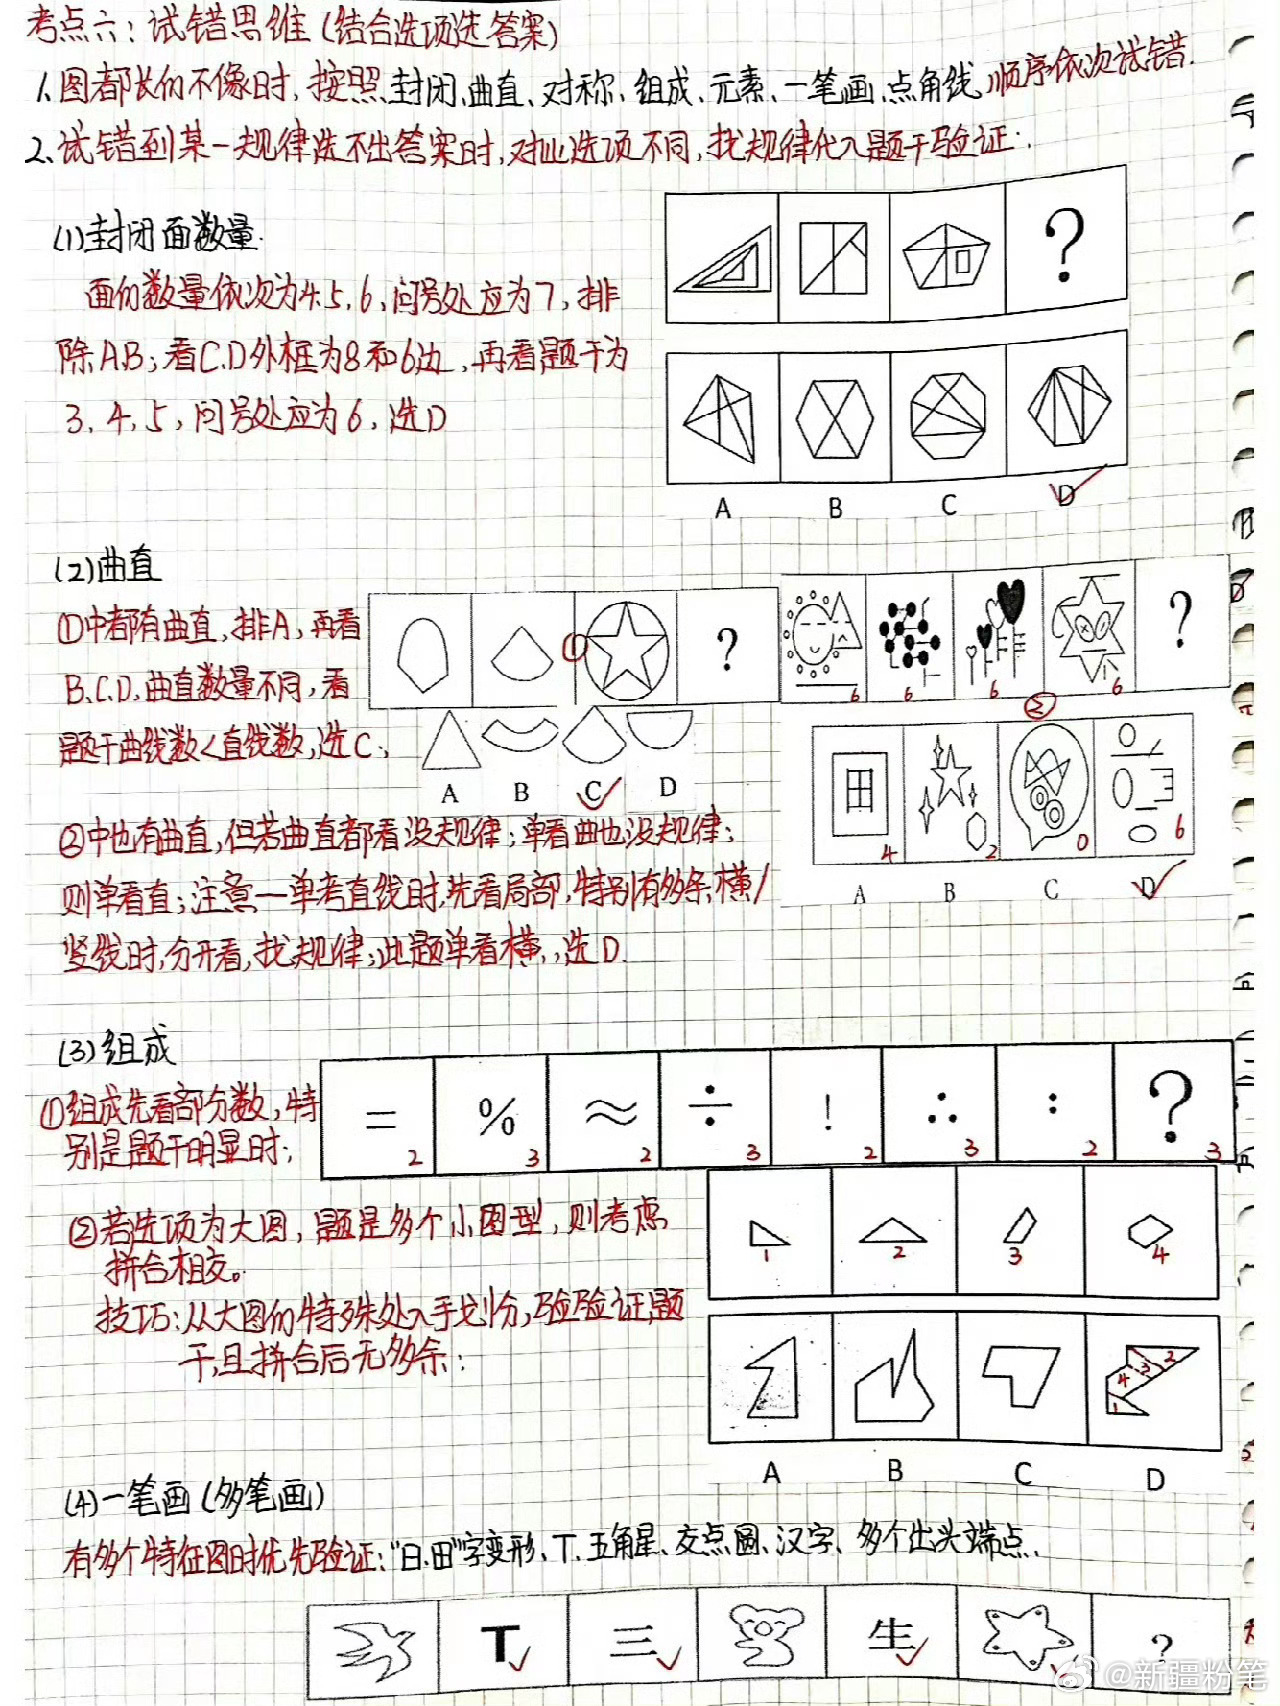 考点六:试错思维(结合选项选答案)
1、图都长的不像时,按照封闭、曲直、对称、组成、元素、一笔画、点角线,顺序依次试错.
2、试错到某一规律选不出答案时,对比选项不同,找规律代入题干验证:
(1)封闭面数量.
面的数量依次为4.5,6,问号处应为7,排
除A.B;看C.D外框为8和6边,再看题干为
3,4,5,问号处应为6,选D
?
A B C D
(2)曲直
①中都有曲直,排A,再看
B.C.D,曲直数量不同,看
题干曲线数<直线数,选C;
① ?
A B C D
?
6 6 6 6
②
4 2 0 6
A B C D
②中也有曲直,但若曲直都看没规律;单看曲也没规律;
则单看直;注意一单考直线时,先看局部,特别有多条横/
竖线时,分开看,找规律;此题单看横,选D.
(3)组成
①组成先看部分数,特
别是题干明显时;
= % ≈ ÷ ! ∴ : ?
2 3 2 3 2 3 2 3
②若选项为大图,题是多个小图型,则考虑
拼合相交。
技巧:从大图的特殊处入手划分,验证题
干,且拼合后无多余;
1 2 3 4
4 3 2
1
A B C D
(4)一笔画(多笔画)
有多个特征图时优先验证:"日.田"字变形、T、五角星、交点圆、汉字、多个出头端点.
T 三 生 ?
@新疆粉笔